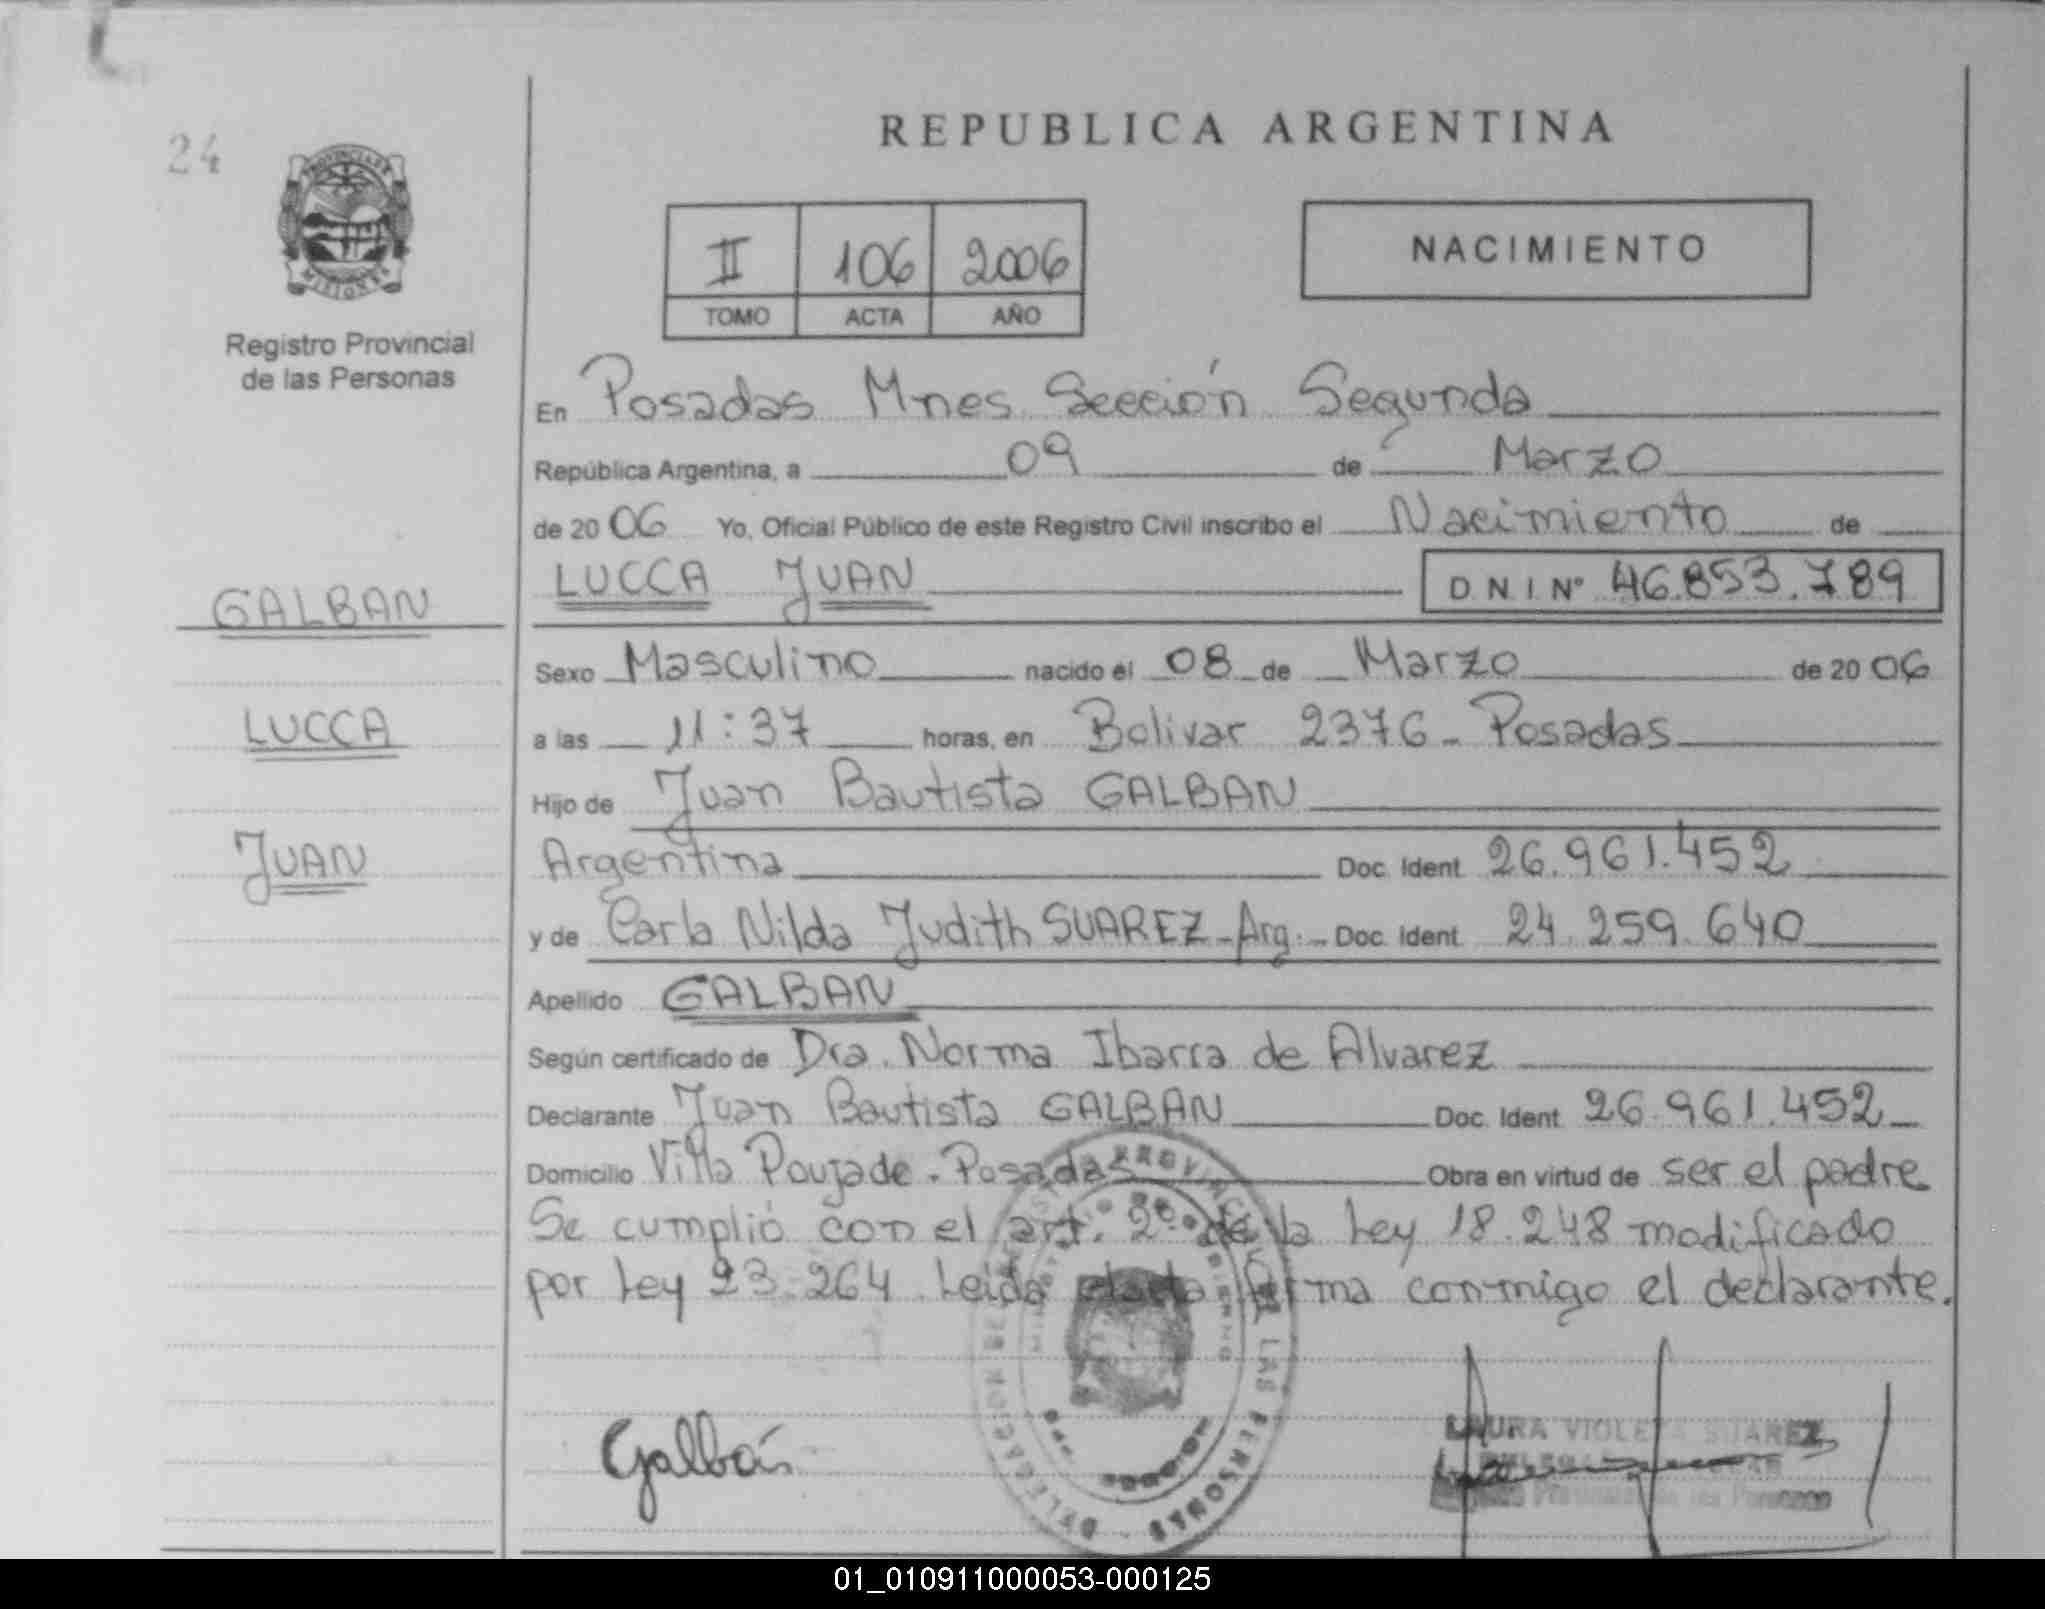 24
PROVINCIA DE
MISIONES
Registro Provincial
de las Personas
REPUBLICA ARGENTINA
II 106 2006
TOMO ACTA AÑO
NACIMIENTO
En Posadas Mnes Sección Segunda
República Argentina, a 09 de Marzo
de 2006 Yo, Oficial Público de este Registro Civil inscribo el Nacimiento de
LUCCA JUAN D.N.I. Nº 46.853.789
GALBAN
LUCCA
JUAN
Sexo Masculino nacido el 08 de Marzo de 2006
a las 11:37 horas, en Bolivar 2376 - Posadas
Hijo de Juan Bautista GALBAN
Argentina Doc. Ident. 26.961.452
y de Carla Nilda Judith SUAREZ - Arg. - Doc. Ident. 24.259.640
Apellido GALBAN
Según certificado de Dra. Norma Ibarra de Alvarez
Declarante Juan Bautista GALBAN Doc. Ident. 26.961.452
Domicilio Villa Poujade. Posadas Obra en virtud de ser el padre
Se cumplió con el art. 2º de la Ley 18.248 modificado
por Ley 23.264 Leida el acta firma conmigo el declarante.
Galbán
LAURA VIOLETA SUAREZ
Provincial de las Personas
LAS PERSONAS
01_010911000053-000125